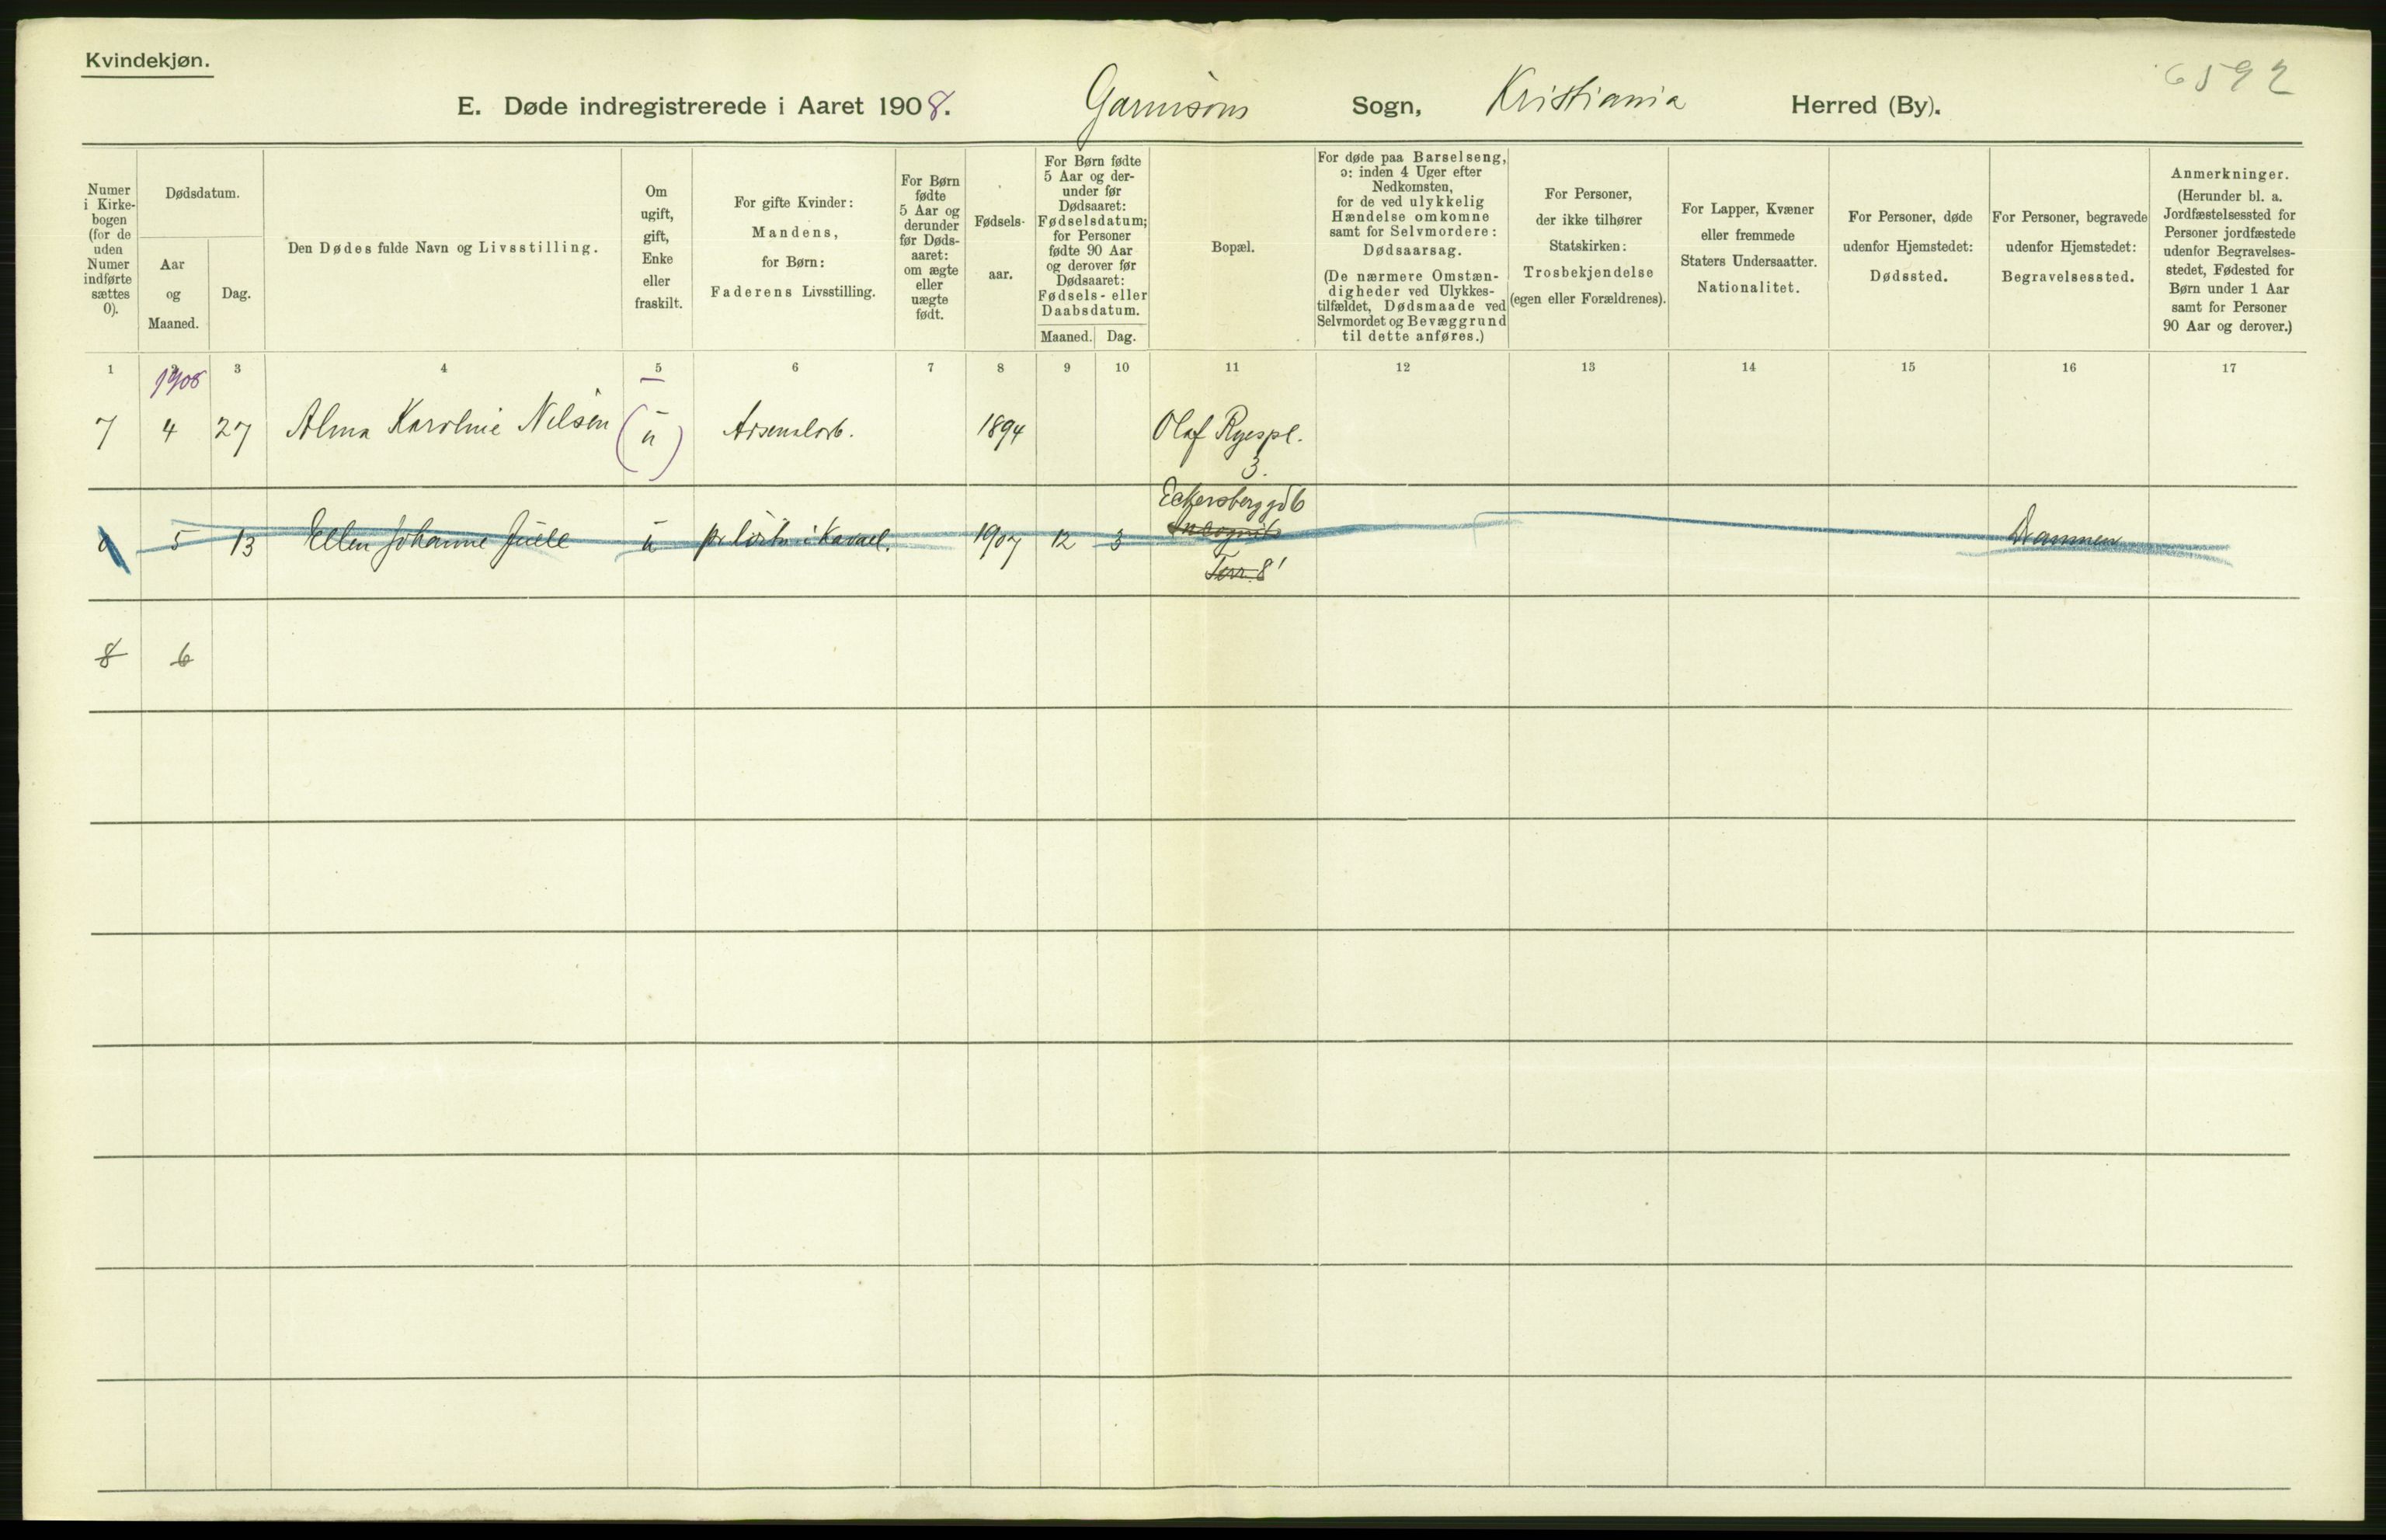 Kvindekjøn.
6592
E. Døde indregistrerede i Aaret 1908. Garnisons Sogn, Kristiania Herred (By).
Numer i Kirkebogen (for de uden Numer indførte sættes 0).
Dødsdatum.
Aar og Maaned.
Dag.
Den Dødes fulde Navn og Livsstilling.
Om ugift, gift, Enke eller fraskilt.
For gifte Kvinder: Mandens, for Børn: Faderens Livsstilling.
For Børn fødte 5 Aar og derunder før Dødsaaret: om ægte eller uægte født.
Fødselsaar.
For Børn fødte 5 Aar og derunder før Dødsaaret: Fødselsdatum; for Personer fødte 90 Aar og derover før Dødsaaret: Fødsels- eller Daabsdatum.
Maaned. Dag.
Bopæl.
For døde paa Barselseng, ɔ: inden 4 Uger efter Nedkomsten, for de ved ulykkelig Hændelse omkomne samt for Selvmordere: Dødsaarsag.
(De nærmere Omstændigheder ved Ulykkestilfældet, Dødsmaade ved Selvmordet og Bevæggrund til dette anføres.)
For Personer, der ikke tilhører Statskirken: Trosbekjendelse (egen eller Forældrenes).
For Lapper, Kvæner eller fremmede Staters Undersaatter. Nationalitet.
For Personer, døde udenfor Hjemstedet: Dødssted.
For Personer, begravede udenfor Hjemstedet: Begravelsessted.
Anmerkninger.
(Herunder bl. a. Jordfæstelsessted for Personer jordfæstede udenfor Begravelsesstedet, Fødested for Børn under 1 Aar samt for Personer 90 Aar og derover.)
1 2 3 4 5 6 7 8 9 10 11 12 13 14 15 16 17
1908
7 4 27 Alma Karoline Nilsen (u) Arsenalarb. 1894 Olaf Ryespl.
3.
Eckersberggd 6
0 5 13 Ellen Johanne Juell u pr løitn i Kaval. 1907 12 3 Incognito Drammen
Terr. 8'
8 6